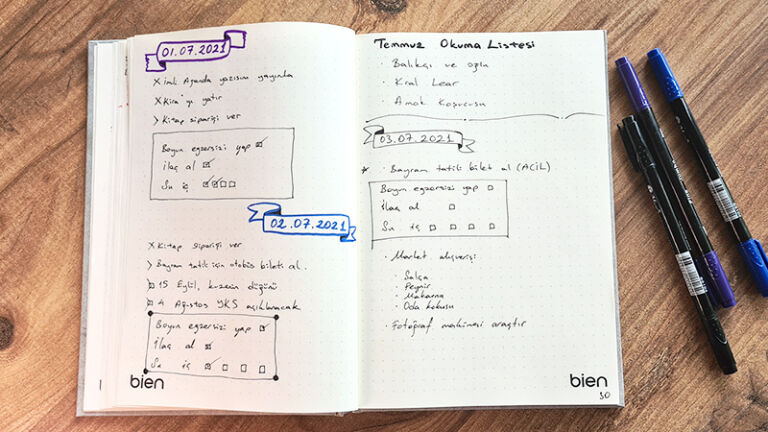 01.07.2021
X imli Ajanda yazısını yayınla
X Kira'yı yatır
> Kitap siparişi ver
Boyun egzersizi yap
ilaç al
Su iç
02.07.2021
X Kitap siparişi ver
> Bayram tatili için otobüs bileti al.
15 Eylül, kuzenin düğünü
4 Ağustos YKS açıklanacak
Boyun egzersizi yap
İlaç al
Su iç
bien
Temmuz Okuma Listesi
· Balıkçı ve oğlu
· Kral Lear
· Amok Koşucusu
03.07.2021
* · Bayram tatili bilet al (ACİL)
Boyun egzersizi yap
İlaç al
Su iç
· Market alışverişi
· Salça
· Peynir
· Makarna
· Oda kokusu
· Fotoğraf makinesi araştır
bien
30